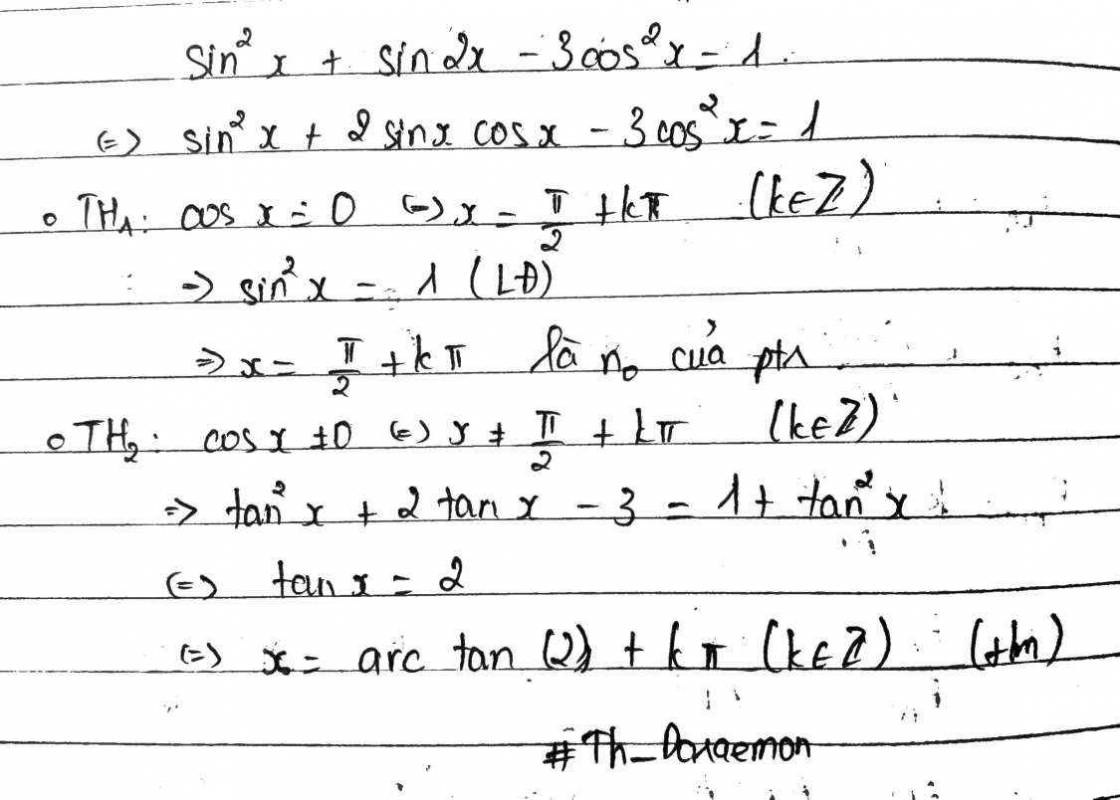 sin² x + sin 2x - 3cos² x = 1.
(=) sin² x + 2 sinx cosx - 3cos² x = 1
∘ TH₁: cos x = 0 (=) x = π/2 + kπ (k∈Z)
=> sin² x = 1 (LĐ)
=> x = π/2 + kπ là n₀ của pt
∘ TH₂: cosx ≠ 0 (=) x ≠ π/2 + kπ (k∈Z)
=> tan² x + 2 tan x - 3 = 1 + tan² x
(=) tan x = 2
(=) x = arc tan (2) + kπ (k∈Z) (tm)
#Th_Doraemon